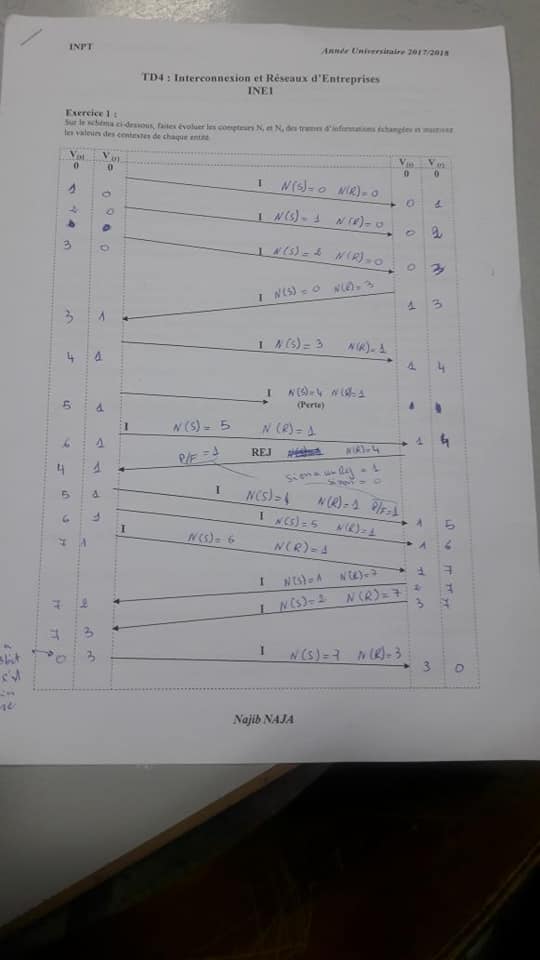 INPT Année Universitaire 2017/2018
TD4 : Interconnexion et Réseaux d'Entreprises
INE1
Exercice 1 :
Sur le schéma ci-dessous, faites évoluer les compteurs Nr et Ns des trames d'informations échangées et inscrivez
les valeurs des contextes de chaque entité.
V(s) V(r) V(s) V(r)
0 0 0 0
I N(S)=0 N(R)=0
1 0 0 1
I N(S)=1 N(R)=0
2 0 0 2
I N(S)=2 N(R)=0
3 0 0 3
I N(S)=0 N(R)=3
1 3
3 1
I N(S)=3 N(R)=1
4 1 1 4
I N(S)=4 N(R)=1
(Perte)
5 1
I N(S)=5 N(R)=1
6 1 1 4
P/F=1 REJ N(R)=4
4 1
si on a un = 1
sinon = 0
I N(S)=4 N(R)=1 P/F=1
5 1 1 5
I N(S)=5 N(R)=1
6 1 1 6
I N(S)=6 N(R)=1
7 1 1 7
I N(S)=1 N(R)=7
2 7
7 2
I N(S)=2 N(R)=7
3 7
7 3
I N(S)=7 N(R)=3
0 3 3 0
Najib NAJA